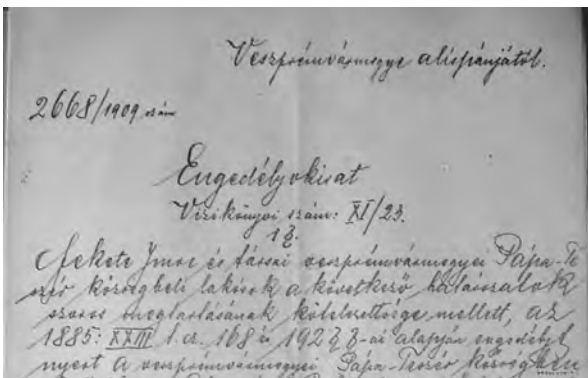 Veszprémvármegye alispánjától.
2668/1909 szám
Engedélyokirat
Vizikönyvi szám: XI/23.
Fekete Imre és társai veszprémvármegyei Pápa-Te
szér községbeli lakósok a következő határozatok
szoros megtartásának kötelezettsége mellett, az
1885: XXIII t. cz. 168 és 192 § §-ai alapján engedélyt
nyert a veszprémvármegyei Pápa-Teszér községben